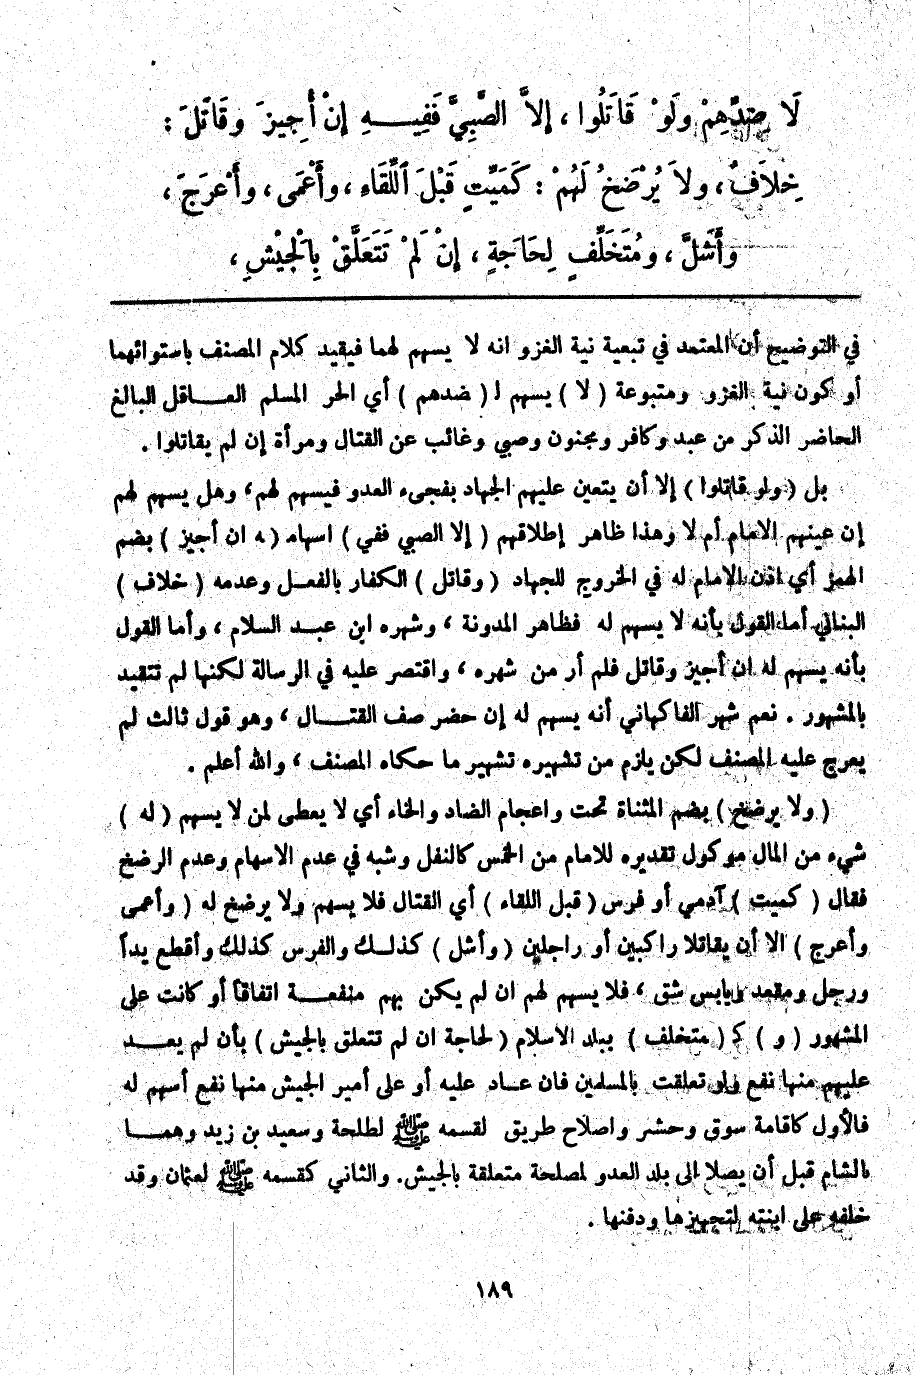 لَا ضِدِّهِمْ وَلَوْ قَاتَلُوا ، إِلاَّ الصَّبِيَّ فَفِيــهِ إِنْ أُجِيزَ وقَاتَلَ :
خِلاَفٌ ، ولاَ يُرْضَخُ لَهُمْ : كَمَيِّتٍ قَبْلَ اللِّقَاءِ ، وأَعْمَى ، وأَعْرَجَ ،
وأَشَلَّ ، ومُتَخَلِّفٍ لِحَاجَةٍ ، إِنْ لَمْ تَتَعَلَّقْ بِالْجَيْشِ ،
في التوضيح أن المعتمد في تبعية نية الغزو انه لا يسهم لهما فيقيد كلام المصنف باستوائهما
أو كون نية الغزو ومتبوعة ( لا ) يسهم لـ ( ضدهم ) أي الحر المسلم العــاقل البالغ
الحاضر الذكر من عبد وكافر ومجنون وصبي وغائب عن القتال ومرأة إن لم يقاتلوا .
بل ( ولو قاتلوا ) إلا أن يتعين عليهم الجهاد بفجىء العدو فيسهم لهم ، وهل يسهم لهم
إن عينهم الامام أم لا وهذا ظاهر إطلاقهم ( إلا الصبي ففي ) اسهامه ( ـه ان أجيز ) بضم
الهمز أي اذن الامام له في الخروج للجهاد ( وقاتل ) الكفار بالفعــل وعدمه ( خلاف )
البناني أما القول بأنه لا يسهم له فظاهر المدونة ، وشهره ابن عبــد السلام ، وأما القول
بأنه يسهم له ان أجيز وقاتل فلم أر من شهره ، واقتصر عليه في الرسالة لكنها لم تتقيد
بالمشهور . نعم شهر الفاكهاني أنه يسهم له إن حضر صف القتــال ، وهو قول ثالث لم
يعرج عليه المصنف لكن يلزم من تشهيره تشهير ما حكاه المصنف ، والله أعلم .
( ولا يرضخ ) بضم المثناة تحت واعجام الضاد والخاء أي لا يعطى لمن لا يسهم ( له )
شيء من المال موكول تقديره للامام من الخمس كالنفل وشبه في عدم الاسهام وعدم الرضخ
فقال ( كميت ) آدمي أو فرس ( قبل اللقاء ) أي القتال فلا يسهم ولا يرضخ له ( وأعمى
وأعرج ) الا أن يقاتلا راكبين أو راجلين ( وأشل ) كذلــك والفرس كذلك وأقطع يدأ
ورجل ومقعد ويابس شق ، فلا يسهم لهم ان لم يكن بهم منفعــة اتفاقاً أو كانت على
المشهور ( و ) كـ ( متخلف ) ببلد الاسلام ( لحاجة ان لم تتعلق بالجيش ) بأن لم يعــد
عليهم منها نفع ولو تعلقت بالمسلمين فان عــاد عليه أو على أمير الجيش منها نفع أسهم له
فالأول كاقامة سوق وحشر واصلاح طريق لقسمه ﷺ لطلحة وسعيد بن زيد وهمــا
بالشام قبل أن يصلا الى بلد العدو لمصلحة متعلقة بالجيش . والثاني كقسمه ﷺ لعثمان وقد
خلفه على ابنته لتجهيزها ودفنها .
١٨٩